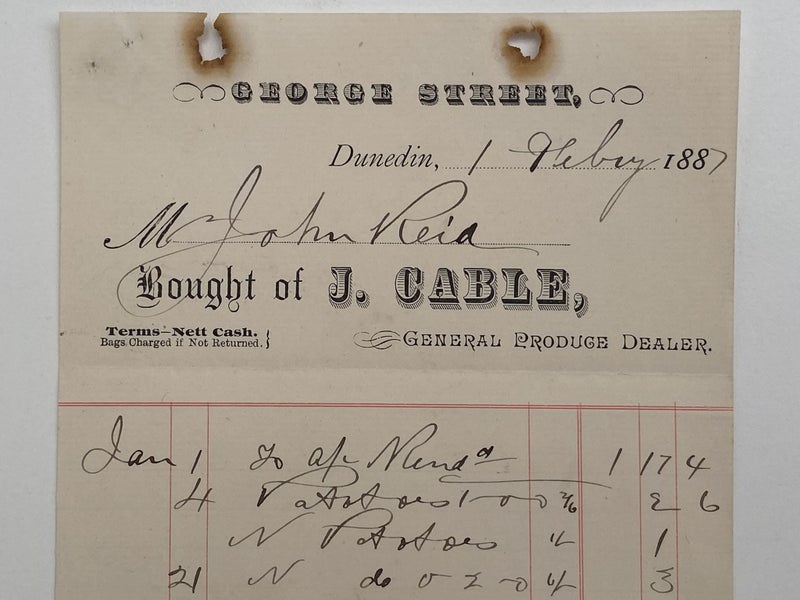 GEORGE STREET,
Dunedin, 1 Febry 1887
Mr John Reid
Bought of J. CABLE,
Terms—Nett Cash.
Bags Charged if Not Returned.
GENERAL PRODUCE DEALER.
Jan 1 To a/c Rendd 1 17 4
4 Potatoes 1-0-0 2/6 2 6
N Potatoes 1
21 N do 0-2-0 3